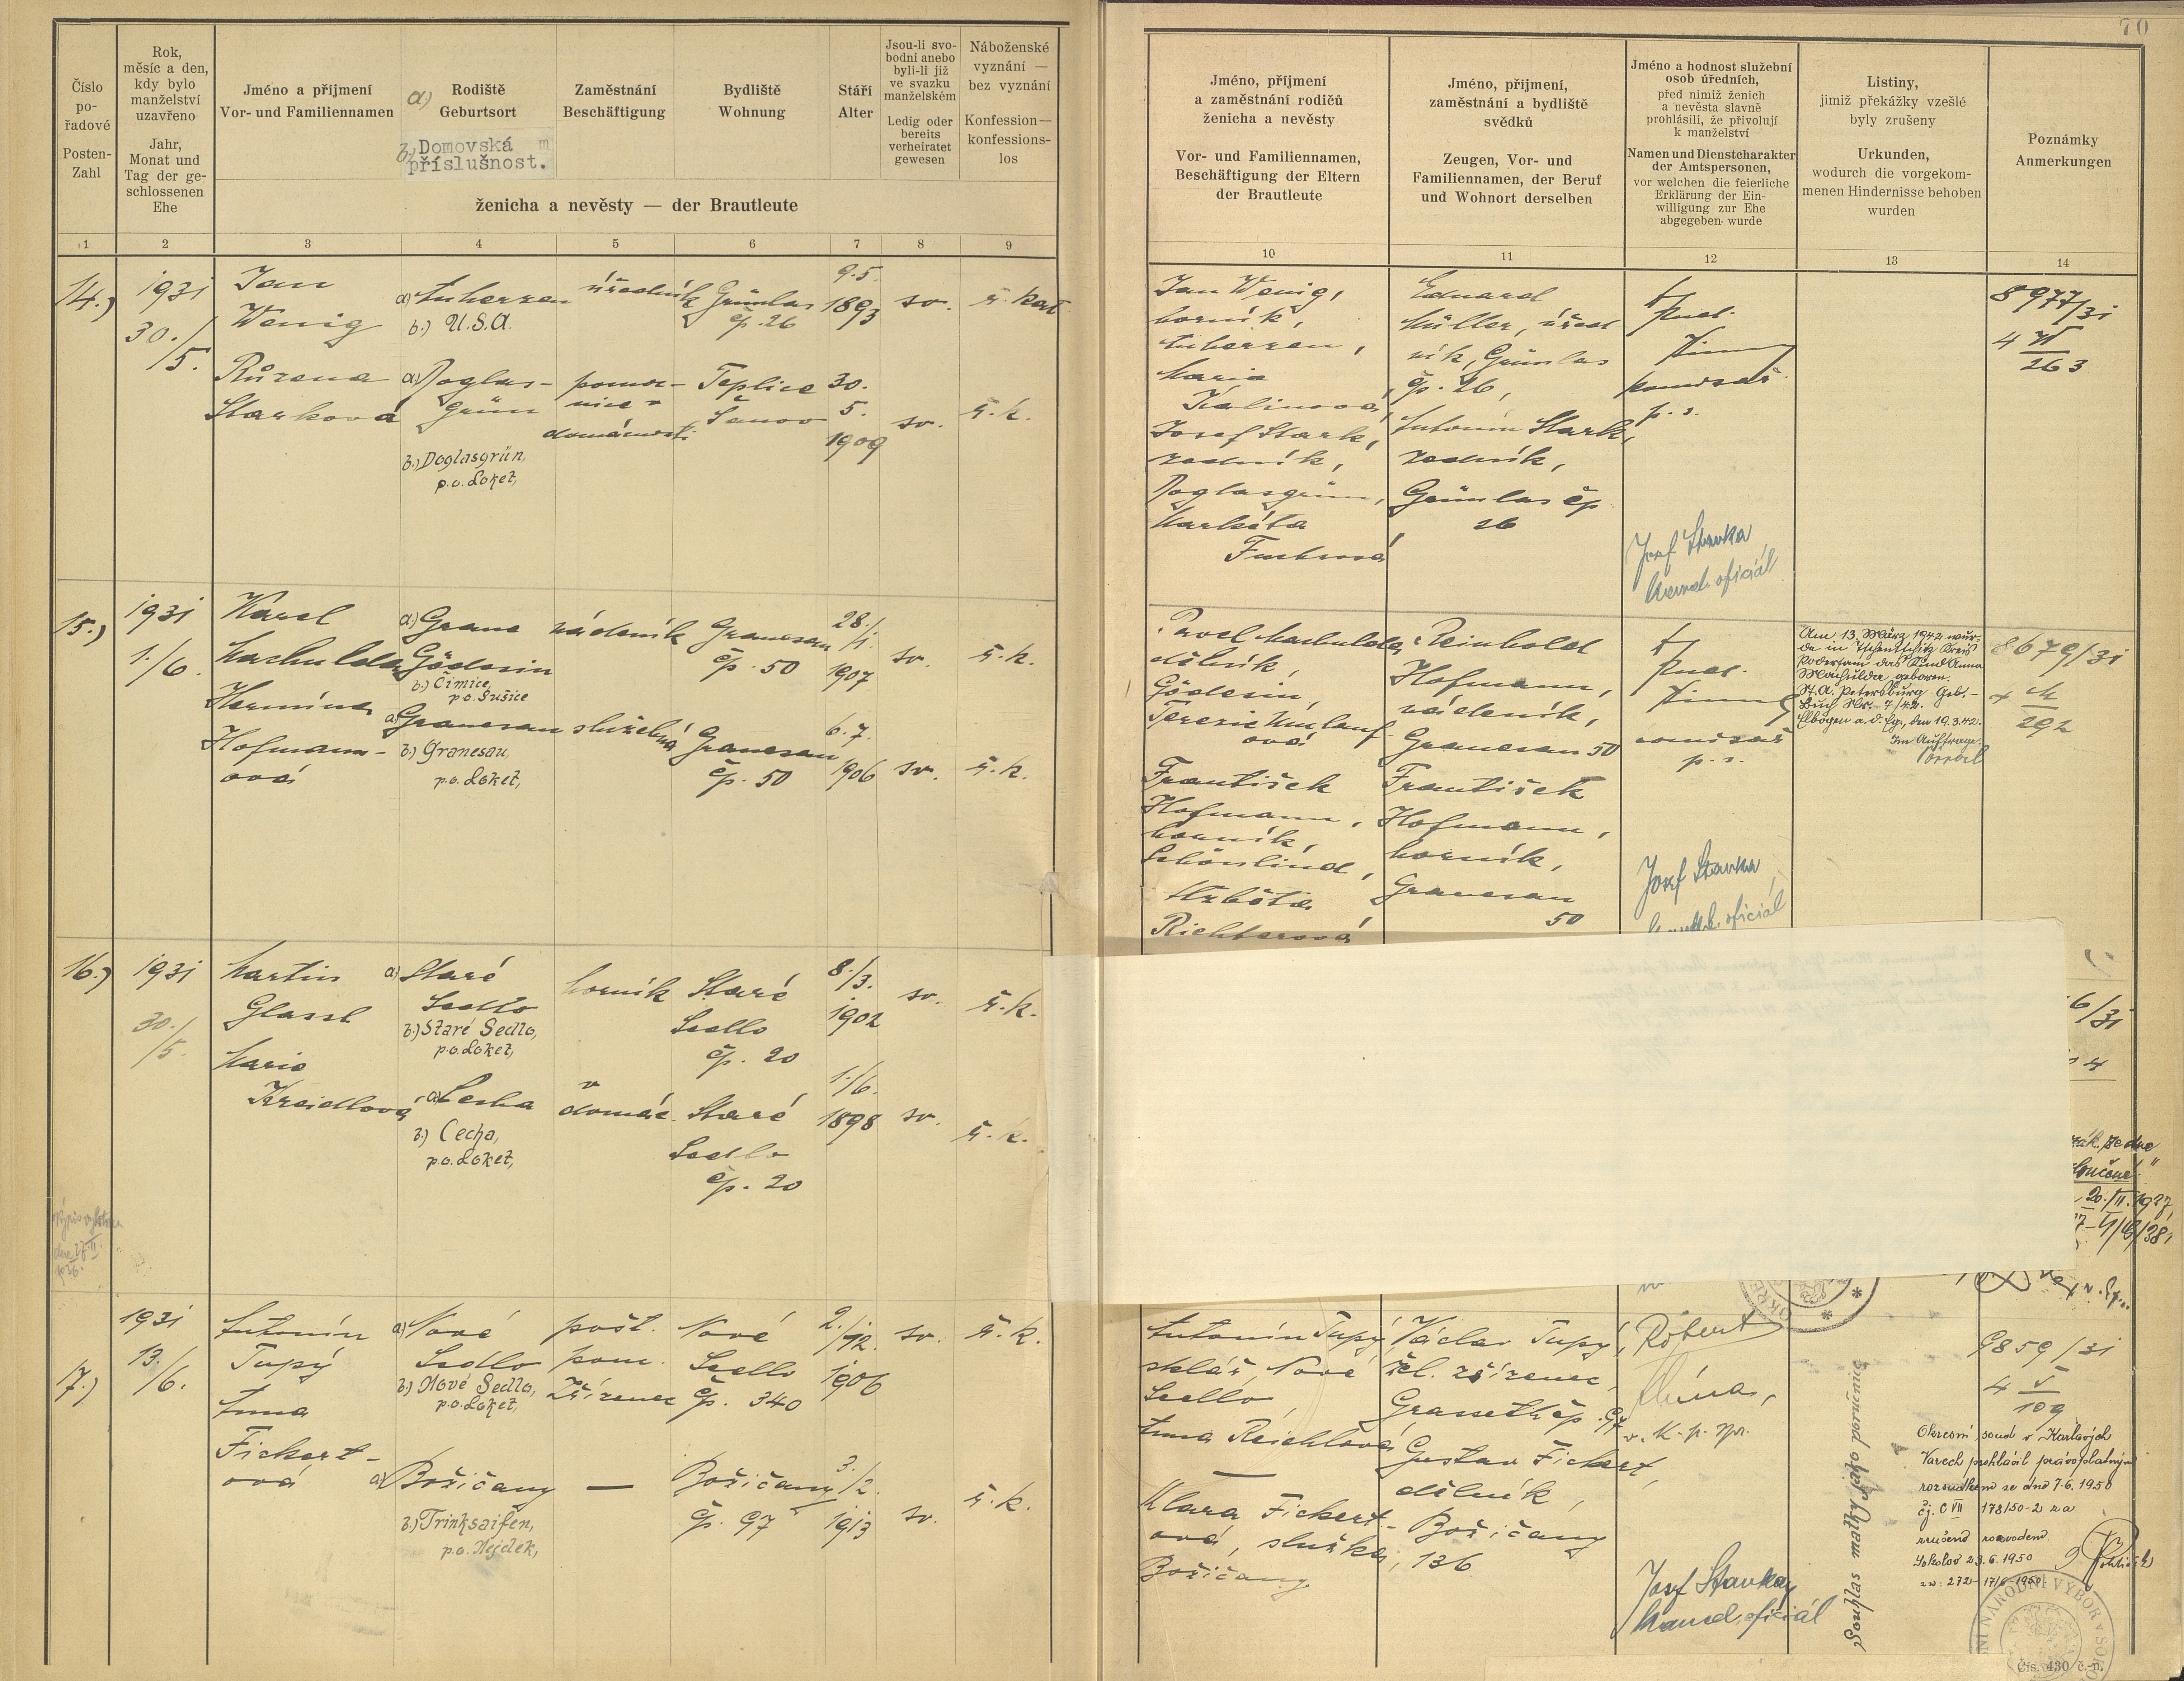 70
Číslo
po-
řadové
Posten-
Zahl
Rok,
měsíc a den,
kdy bylo
manželství
uzavřeno
Jahr,
Monat und
Tag der ge-
schlossenen
Ehe
Jméno a příjmení
Vor- und Familiennamen
a)
Rodiště
Geburtsort
b) Domovská
příslušnost.
Zaměstnání
Beschäftigung
Bydliště
Wohnung
Stáří
Alter
Jsou-li svo-
bodni anebo
byli-li již
ve svazku
manželském
Ledig oder
bereits
verheiratet
gewesen
Náboženské
vyznání —
bez vyznání
Konfession—
konfessions-
los
ženicha a nevěsty — der Brautleute
1 2 3 4 5 6 7 8 9
14.)
1931
30./
5.
Jan
Wenig
a)
b.) U.S.A.
úředník
Grünlas
čp. 26
9.5.
1893
sv.
ř. kat
Růžena
Starková
a) Doglas-
grün
b.) Doglasgrün,
p.o. Loket,
pomoc-
nice v
domácnosti
Teplice
Šanov
30.
5.
1909
sv.
ř. k.
15.)
1931
1./6.
Karel
Machulda
a.) Grane
Göderin
b.) Čimice,
p.o. Sušice
nádeník
Granesau
čp. 50
28./
1.
1907
sv.
ř. k.
Hermína
Hofmann-
ová
a) Granesau
b.) Granesau,
p.o. Loket,
služebná
Granesau
čp. 50
6. 7.
1906
sv.
ř. k.
16.)
1931
30./
5.
Martin
Glassl
a) Staré
Sedlo
b.) Staré Sedlo,
p.o. Loket,
horník
Staré
Sedlo
čp. 20
8./3.
1902
sv.
ř. k.
Marie
Kreidlová
a) Cecha
b.) Cecha,
p.o. Loket,
v
domác.
Staré
Sedlo
čp. 20
1./6.
1898
sv.
ř. k.
17.)
1931
13./6.
Antonín
Tupý
a) Nové
Sedlo
b.) Nové Sedlo,
p.o. Loket,
pošt.
pom.
zřízenec
Nové
Sedlo
čp. 340
2./
12.
1906
sv.
ř. k.
Anna
Fickert-
ová
a) Božičany
b.) Trinksaifen,
p.o. Nejdek,
—
Božičany
čp. 97
3./2.
1913
sv.
ř. k.
Jméno, příjmení
a zaměstnání rodičů
ženicha a nevěsty
Vor- und Familiennamen,
Beschäftigung der Eltern
der Brautleute
Jméno, příjmení,
zaměstnání a bydliště
svědků
Zeugen, Vor- und
Familiennamen, der Beruf
und Wohnort derselben
Jméno a hodnost služební
osob úředních,
před nimiž ženich
a nevěsta slavně
prohlásili, že přivolují
k manželství
Namen und Dienstcharakter
der Amtspersonen,
vor welchen die feierliche
Erklärung der Ein-
willigung zur Ehe
abgegeben wurde
Listiny,
jimiž překážky vzešlé
byly zrušeny
Urkunden,
wodurch die vorgekom-
menen Hindernisse behoben
wurden
Poznámky
Anmerkungen
10 11 12 13 14
Jan Wenig,
horník,
Marie
Kalinová,
Josef Stark,
zedník,
Doglasgrün,
Markéta
Fuchsová
Eduard
Müller, úřed
ník, Grünlas
čp. 26,
Antonín Stark,
zedník,
Grünlas čp
26
komisař
p. s.
Josef Stavka,
kancel. oficiál
8977/31
4 VI
263
Pavel Machulda,
dělník,
Göderin,
Terezie Umlauf
ová
František
Hofmann,
horník,
Schönlind,
Alžběta
Richterová
Reinhold
Hofmann,
nádeník,
Granesau 50
František
Hofmann,
horník,
Granesau
50
komisař
p. s.
Josef Stavka,
oficiál
Am 13. März 1942 wur-
de in Tschentschitz Kreis
Podersam das Kind Anna
Machulda geboren.
St. A. Petersburg - Geb.-
Buch Nr. 7/42.
Elbogen a. d. Eg., den 19.3.42.
Im Auftrage:
8679/31
292
6/31
4
20./II. 1937,
Antonín Tupý,
sklář, Nové
Sedlo,
Anna Reichlová
—
Klara Fickert-
ová, služka,
Božičany
Václav Tupý,
žel. zřízenec,
Grasseth čp. 97
Gustav Fickert,
dělník,
Božičany
136
Robert
v. k. p. spr.
Josef Stavka,
kancel. oficiál
Souhlas matky jako poručnice
9859/31
4 V
109
Okresní soud v Karlových
Varech prohlásil právoplatným
rozsudkem ze dne 7.6. 1950
čj. C VII 178/50-2 za
zrušené rozvodem.
Sokolov 23.6. 1950
NÍ NÁRODNÍ VÝBOR V SOKO
Čís. 430 č.-n.